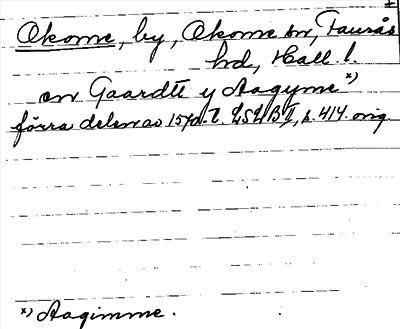 Okome, by, Okome sn, Faurås
hd, Hall. l.
en Gaardtt y Aagyme *)
förra delen av 15/d. t. LSLB II, s. 414. orig.
*) Aagimme.